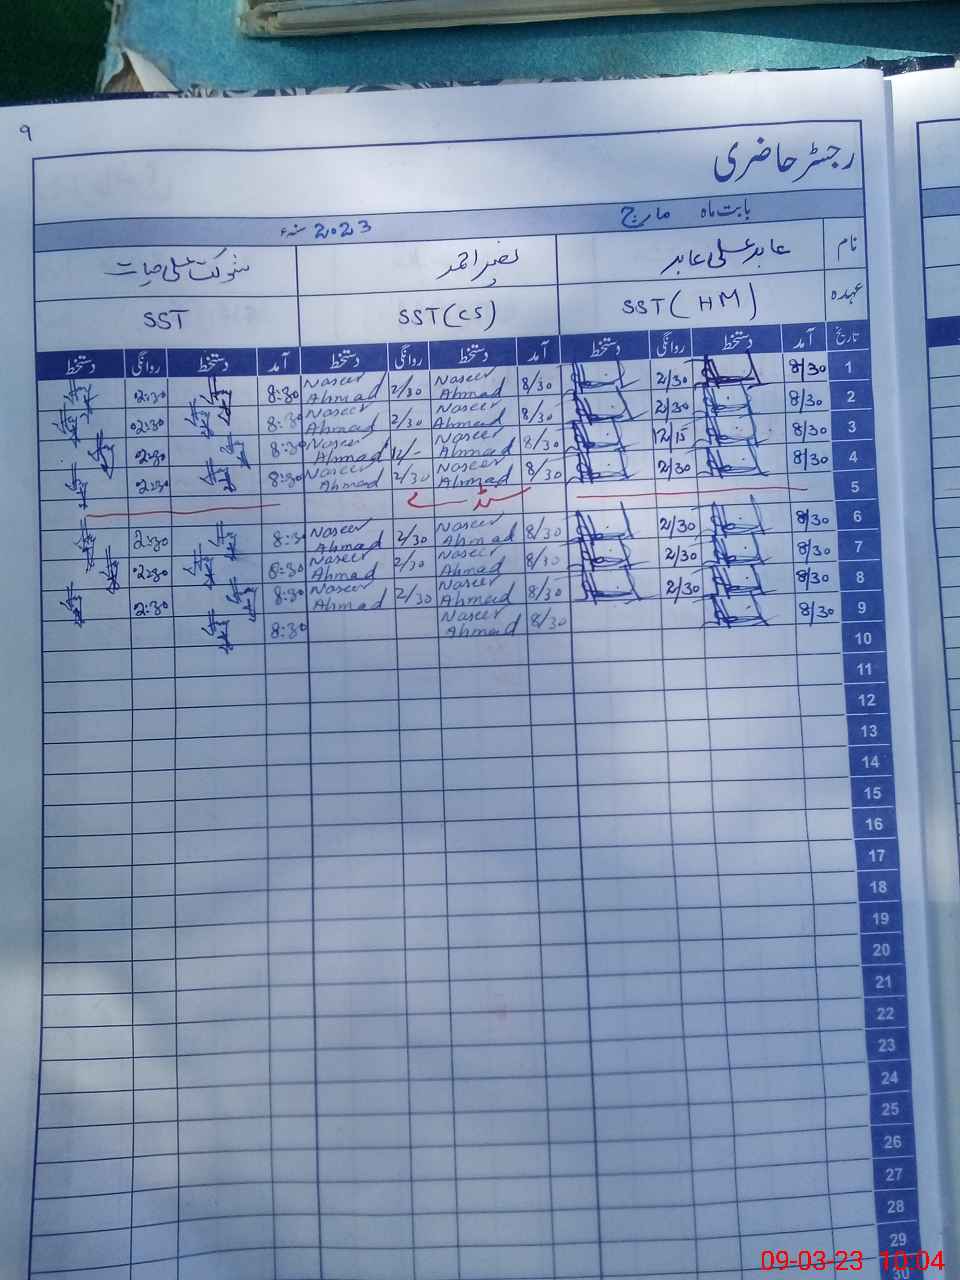 ۹
رجسٹر حاضری
بابت ماہ مارچ 2023 سنہء
نام عابد علی عابد نصیر احمد شوکت علی حیات
عہدہ SST (HM) SST (CS) SST
تاریخ آمد دستخط روانگی دستخط آمد دستخط روانگی دستخط آمد دستخط روانگی دستخط
1 8/30 2/30 8/30 Naseer Ahmad 2/30 Naseer Ahmad 8:30 2:30
2 8/30 2/30 8/30 Naseer Ahmad 2/30 Naseer Ahmad 8:30 2:30
3 8/30 12/15 8/30 Naseer Ahmad 12/- Naseer Ahmad 8:30 2:30
4 8/30 2/30 8/30 Naseer Ahmad 2/30 Naseer Ahmad 8:30 2:30
5 سنڈے
6 8/30 2/30 8/30 Naseer Ahmad 2/30 Naseer Ahmad 8:30 2:30
7 8/30 2/30 8/30 Naseer Ahmad 2/30 Naseer Ahmad 8:30 2:30
8 8/30 2/30 8/30 Naseer Ahmad 2/30 Naseer Ahmad 8:30 2:30
9 8/30 8/30 Naseer Ahmad 8:30
10
11
12
13
14
15
16
17
18
19
20
21
22
23
24
25
26
27
28
29
30
09-03-23 10:04